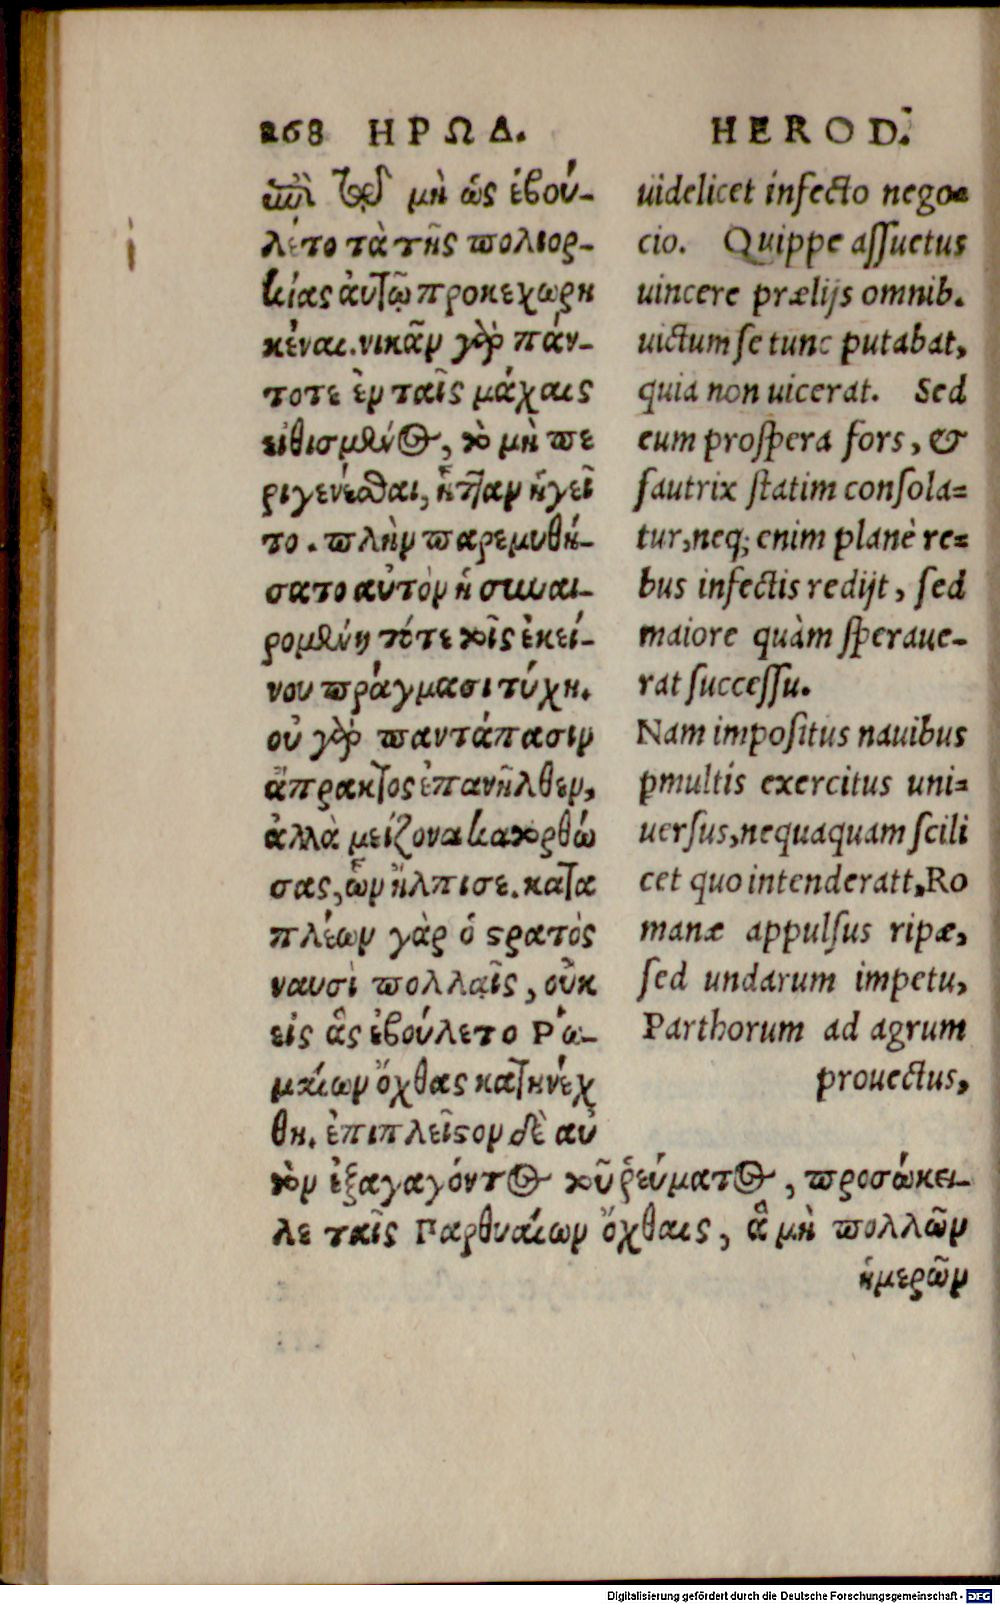 268 ΗΡΩΔ.
ἐπὶ τῷ μὴ ὡς ἐβού-
λετο τὰ τῆς πολιορ-
κίας αὐτῷ προκεχωρη
κέναι. νικᾶν γὰρ πάν-
τοτε ἐν ταῖς μάχαις
εἰθισμένος, τὸ μὴ πε
ριγενέσθαι, ἧτταν ἡγεῖ
το. πλὴν παρεμυθή-
σατο αὐτὸν ἡ συναι-
ρομένη τότε τοῖς ἐκεί-
νου πράγμασι τύχη.
οὐ γὰρ παντάπασιν
ἄπρακτος ἐπανῆλθεν,
ἀλλὰ μείζονα κατορθώ
σας, ὧν ἤλπισε. κατα
πλέων γὰρ ὁ στρατὸς
ναυσὶ πολλαῖς, οὐκ
εἰς ἃς ἐβούλετο Ῥω-
μαίων ὄχθας κατηνέχ
θη. ἐπιπλεῖστον δὲ αὐ
τὸν ἐξαγαγόντος τοῦ ῥεύματος, προσώκει-
λε ταῖς Παρθυαίων ὄχθαις, ἃ μὴ πολλῶν
ἡμερῶν
HEROD.
uidelicet infecto nego=
cio. Quippe assuetus
uincere prælijs omnib.
uictum se tunc putabat,
quia non uicerat. Sed
eum prospera fors, &
fautrix statim consola=
tur, neq; enim planè re=
bus infectis redijt, sed
maiore quàm speraue-
rat successu.
Nam impositus nauibus
pmultis exercitus uni=
uersus, nequaquam scili
cet quo intenderatt, Ro
manæ appulsus ripæ,
sed undarum impetu,
Parthorum ad agrum
prouectus,
Digitalisierung gefördert durch die Deutsche Forschungsgemeinschaft - DFG